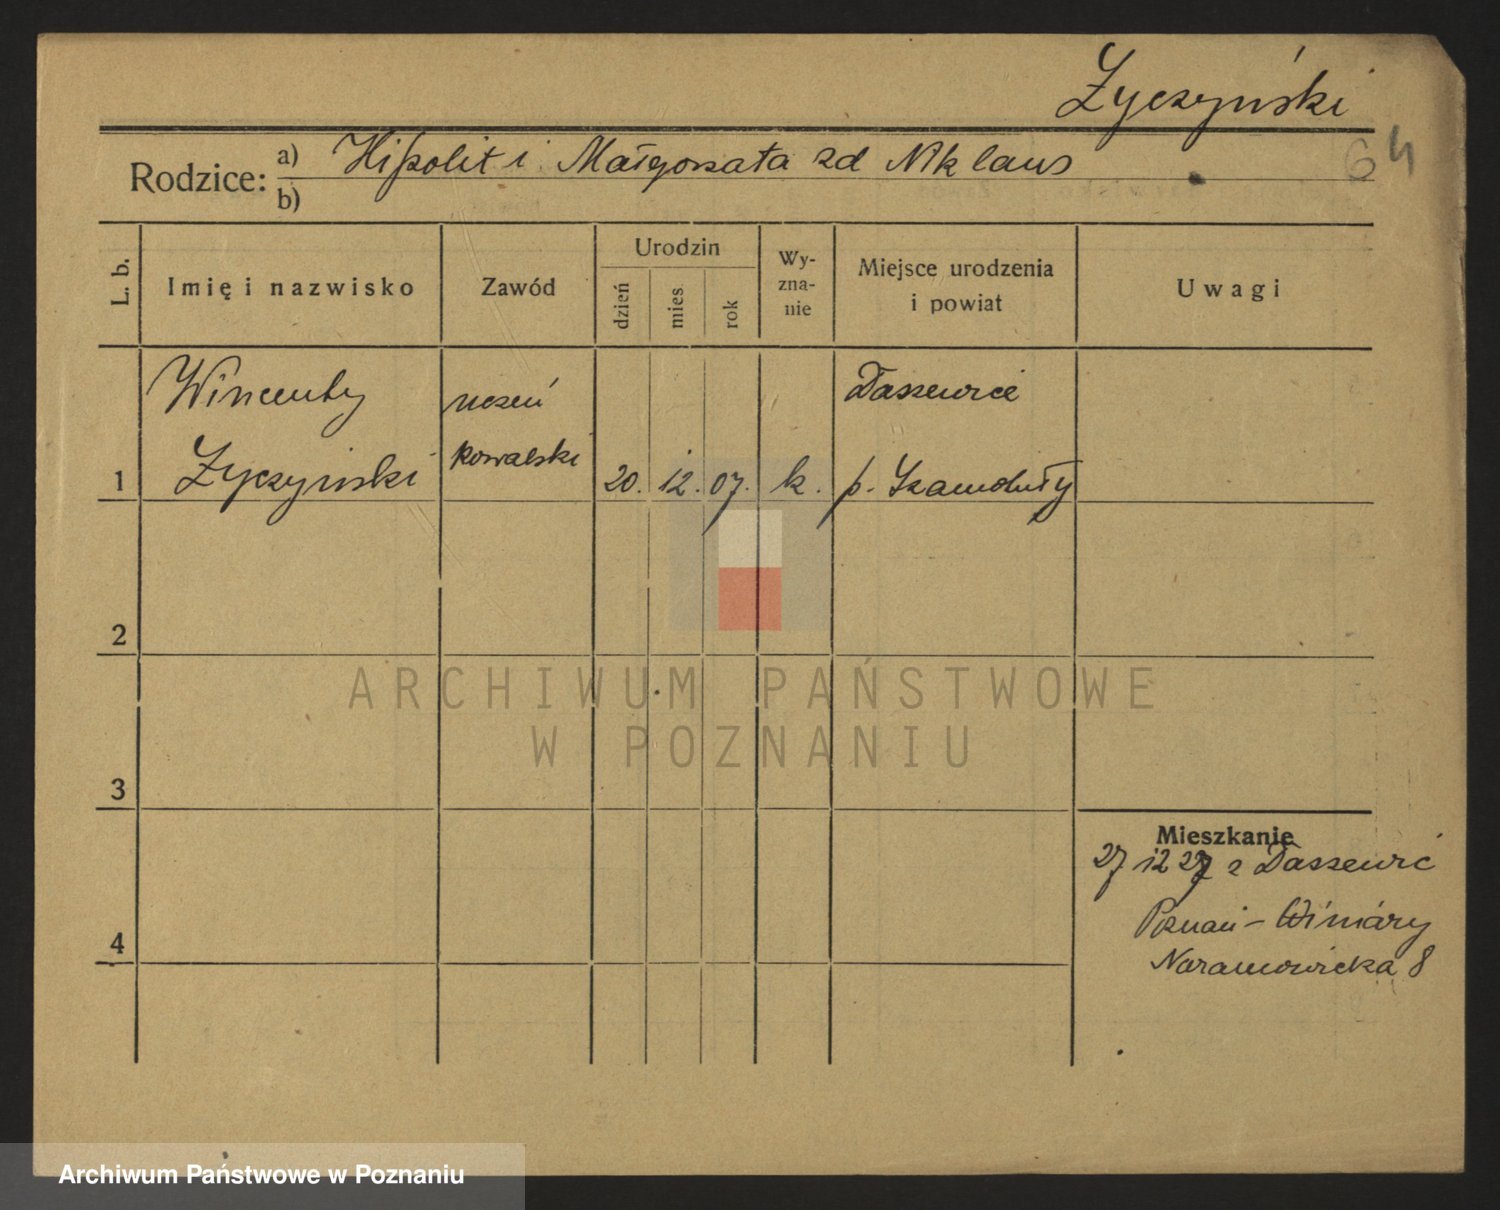 Życzyński
Rodzice: a) Hipolit i Małgorzata zd Niklaus
b)
64
L. b.
Imię i nazwisko
Zawód
Urodzin
dzień
mies
rok
Wy-
zna-
nie
Miejsce urodzenia
i powiat
Uwagi
Wincenty
Życzyński
uczeń
kowalski
20. 12. 07. k.
Daszewice
p. Szamotuły
1
2
3
4
Mieszkanie
27 12 27 z Daszewic
Poznań - Winiary
Naramowicka 8
ARCHIWUM PAŃSTWOWE
W POZNANIU
Archiwum Państwowe w Poznaniu